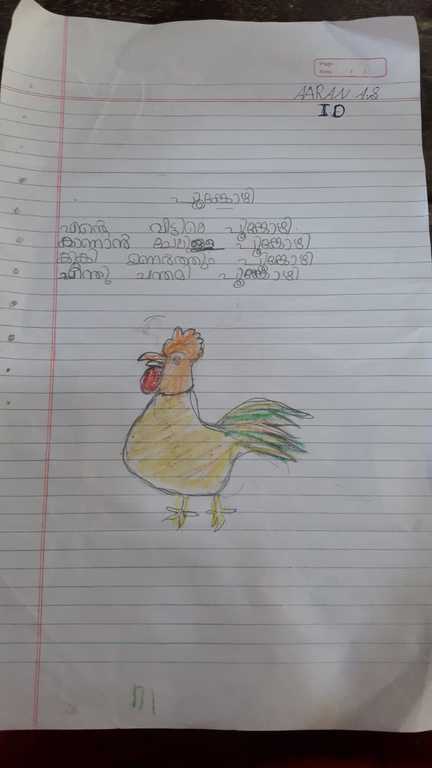 Page:
Date: / /
AARAN A.S
I D
പൂങ്കോഴി
എന്റെ വീട്ടിലെ പൂങ്കോഴി
കാണാൻ ചേലുള്ള പൂങ്കോഴി
കൂകി ഉണർത്തും പൂങ്കോഴി
എന്തു ചന്തമീ പൂങ്കോഴി